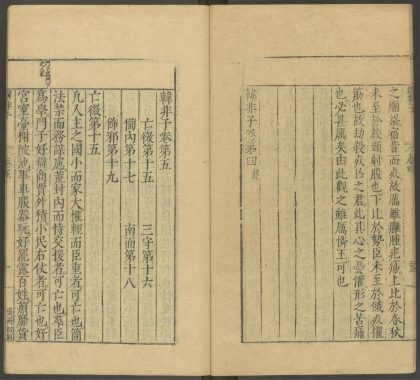 之廟梁宿昔而死故厲雖癰腫疕瘍上比於春秋
未至於絞頸射股也下比於勢臣未至於餓死擢
筋也故劫殺死亡之君此其心之憂懼形之苦痛
也必甚厲矣由此觀之雖厲憐王可也
韓非子卷第四
韓非子卷五
亡徵第十五
三守第十六
備內第十七
南面第十八
飾邪第十九
亡徵第十五
凡人主之國小而家大權輕而臣重者可亡也簡
法禁而務謀慮荒封內而恃交援者可亡也羣臣
為學門子好辯商賈外積小民右仗者可亡也好
宮室臺榭陂池事車服器玩好罷露百姓煎靡貨